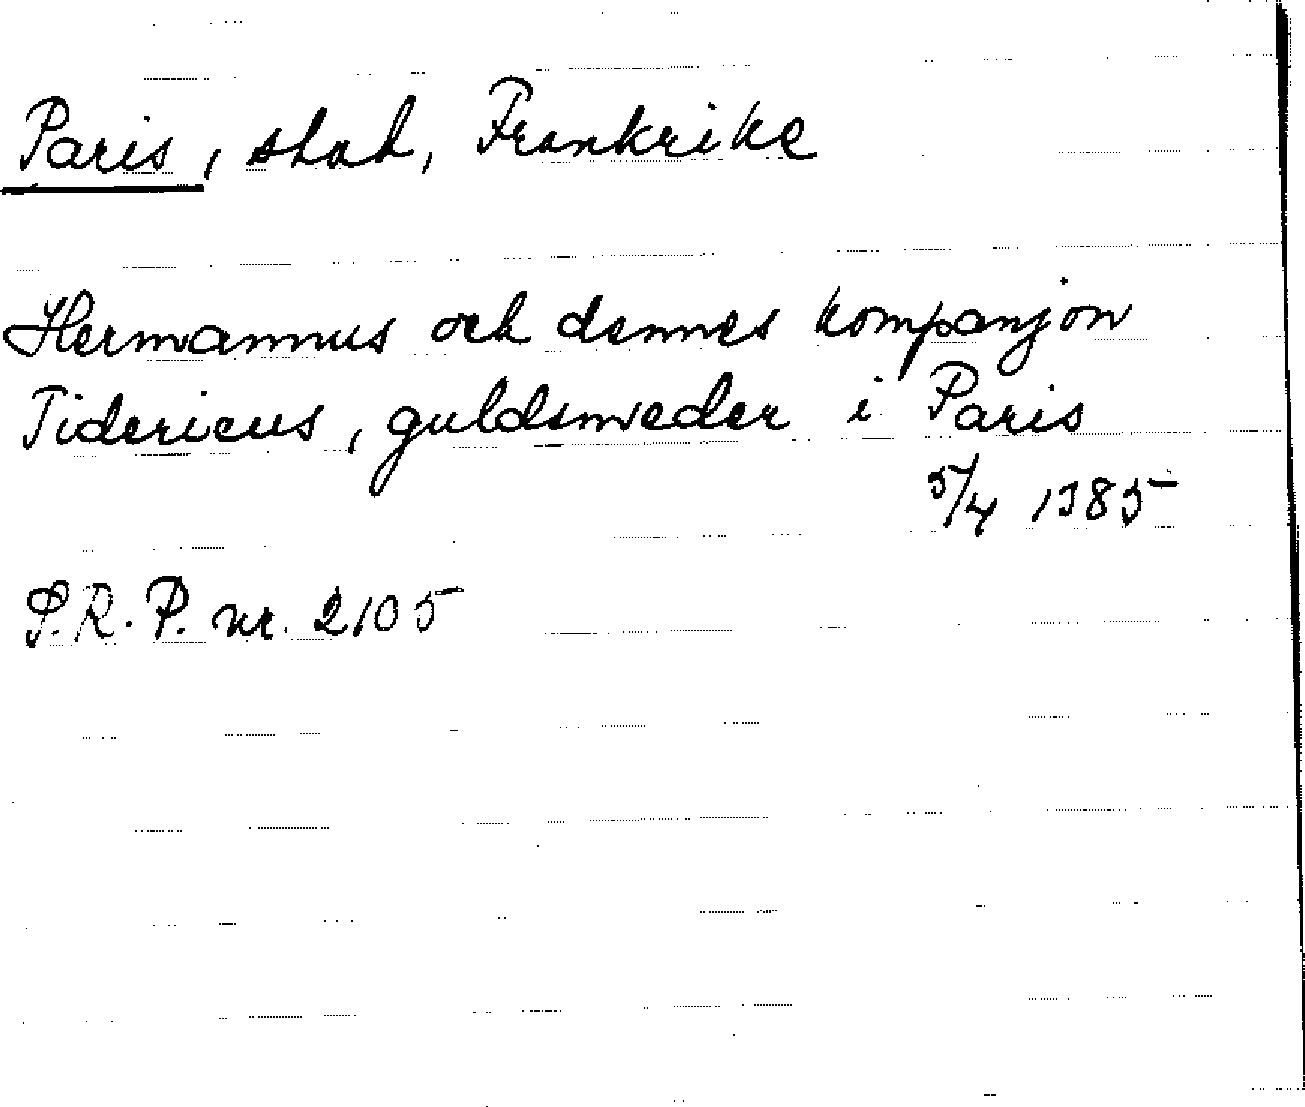 Paris, stad, Frankrike
Hermannus och dennes kompanjon
Tidericus, guldsmeder i Paris
5/4 1385
S.R.P. nr. 2105